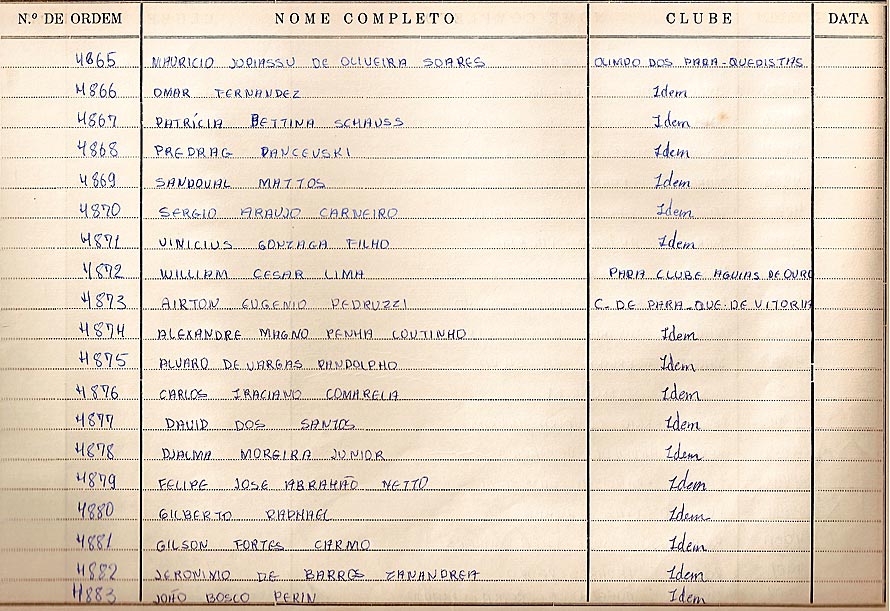 N.º DE ORDEM NOME COMPLETO CLUBE DATA
4865 MAURICIO JUPIASSU DE OLIVEIRA SOARES OLIMPO DOS PARA-QUEDISTAS
4866 OMAR FERNANDEZ Idem
4867 PATRÍCIA BETTINA SCHAUSS Idem
4868 PREDRAG PANCEVSKI Idem
4869 SANDOVAL MATTOS Idem
4870 SERGIO ARAUJO CARNEIRO Idem
4871 VINICIUS GONZAGA FILHO Idem
4872 WILLIAM CESAR LIMA PARA CLUBE AGUIAS DE OURO
4873 AIRTON EUGENIO PEDRUZZI C. DE PARA-QUE-DE VITORIA
4874 ALEXANDRE MAGNO PENHA COUTINHO Idem
4875 ALVARO DE VARGAS PANDOLPHO Idem
4876 CARLOS IRACIANO COMARELA Idem
4877 DAVID DOS SANTOS Idem
4878 DJALMA MOREIRA JUNIOR Idem
4879 FELIPE JOSE ABRAHÃO NETTO Idem
4880 GILBERTO RAPHAEL Idem
4881 GILSON FORTES CARMO Idem
4882 JERONIMO DE BARROS ZANANDREA Idem
4883 JOÃO BOSCO PERIN Idem